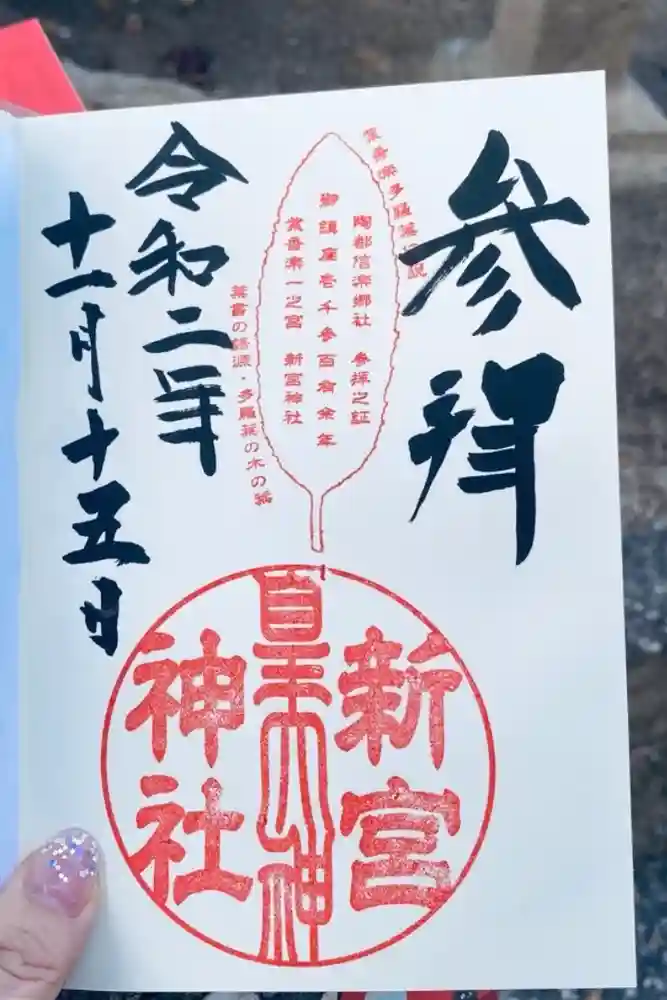 参拝
葉書楽多羅葉伝説
陶都信楽郷社 参拝之証
御鎮座壱千参百有余年
葉書楽一之宮 新宮神社
葉書の語源・多羅葉の木の葉
令和二年
十一月十五日
新宮
皇大神
神社